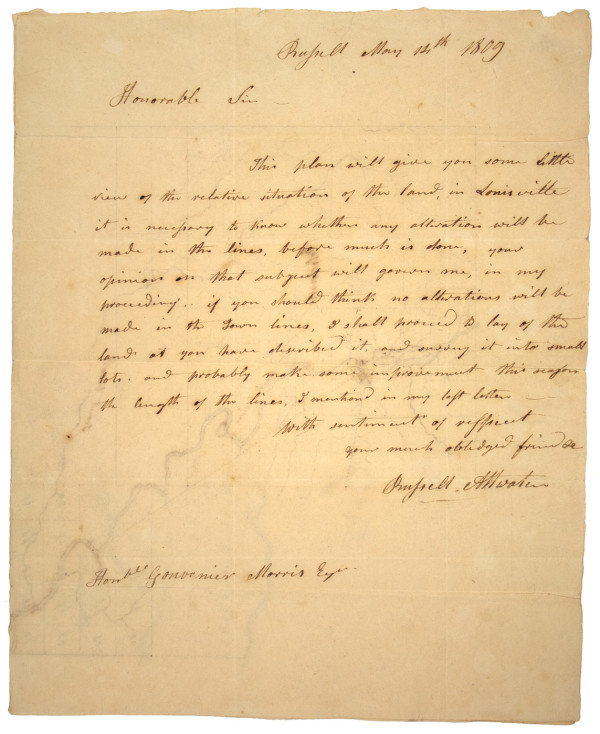 Russell May 14th 1809
Honorable Sir —
This plan will give you some little
view of the relative situation of the land, in Louisville
it is necessary to know whether any alteration will be
made in the lines, before much is done, your
opinion on that subject will govern me, in my
proceeding.. if you should think no alterations will be
made in the Town lines, I shall proceed to lay of the
land, at you have described it, and survey it into small
lots. and probably make some improvement this season
the length of the lines, I mentiond in my last letter —
With sentiment of respect
your much obledged friend &c
Russell Attwater
Honble Gouvenier Morris Esqr